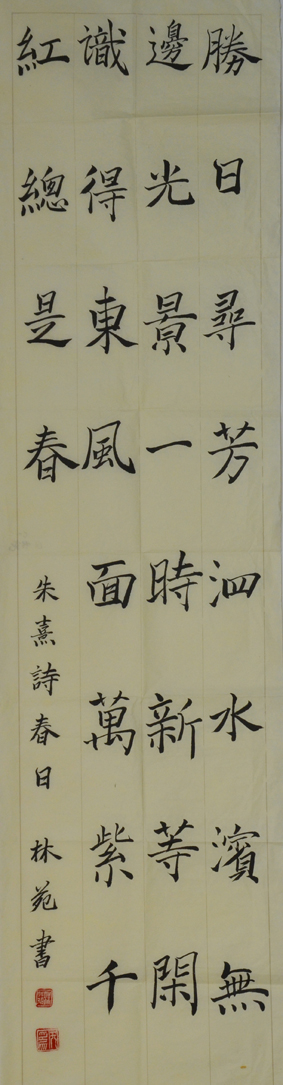 勝日尋芳泗水濱無
邊光景一時新等閑
識得東風面萬紫千
紅總是春
朱熹詩春日 林苑書